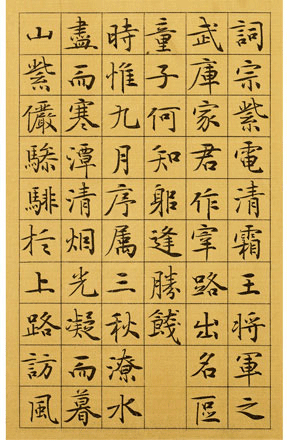 詞宗紫電清霜王將軍之
武庫家君作宰路出名區
童子何知躬逢勝餞
時惟九月序属三秋潦水
盡而寒潭清烟光凝而暮
山紫儼驂騑於上路訪風